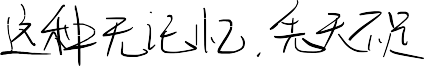 这种无记忆.先天不足